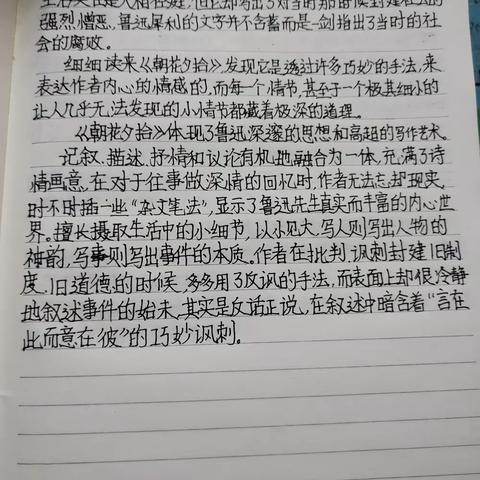 强烈憎恶。鲁迅犀利的文字并不含蓄而是一剑指出了当时的社
会的腐败。
细细读来《朝花夕拾》,发现它是透过许多巧妙的手法,来
表达作者内心的情感的,而每一个情节,甚至于一个极其细小的
让人几乎无法发现的小情节都藏着极深的道理。
《朝花夕拾》体现了鲁迅深邃的思想和高超的写作艺术。
记叙、描述、抒情和议论有机地融合为一体,充满了诗
情画意,在对于往事做深情的回忆时,作者无法忘却现实,
时不时插一些“杂文笔法”,显示了鲁迅先生真实而丰富的内心世
界。擅长摄取生活中的小细节,以小见大,写人则写出人物的
神韵,写事则写出事件的本质。作者在批判、讽刺封建旧制
度、旧道德的时候,多多用了反讽的手法,而表面上却很冷静
地叙述事件的始末,其实是反话正说,在叙述中暗含着“言在
此而意在彼”的巧妙讽刺。